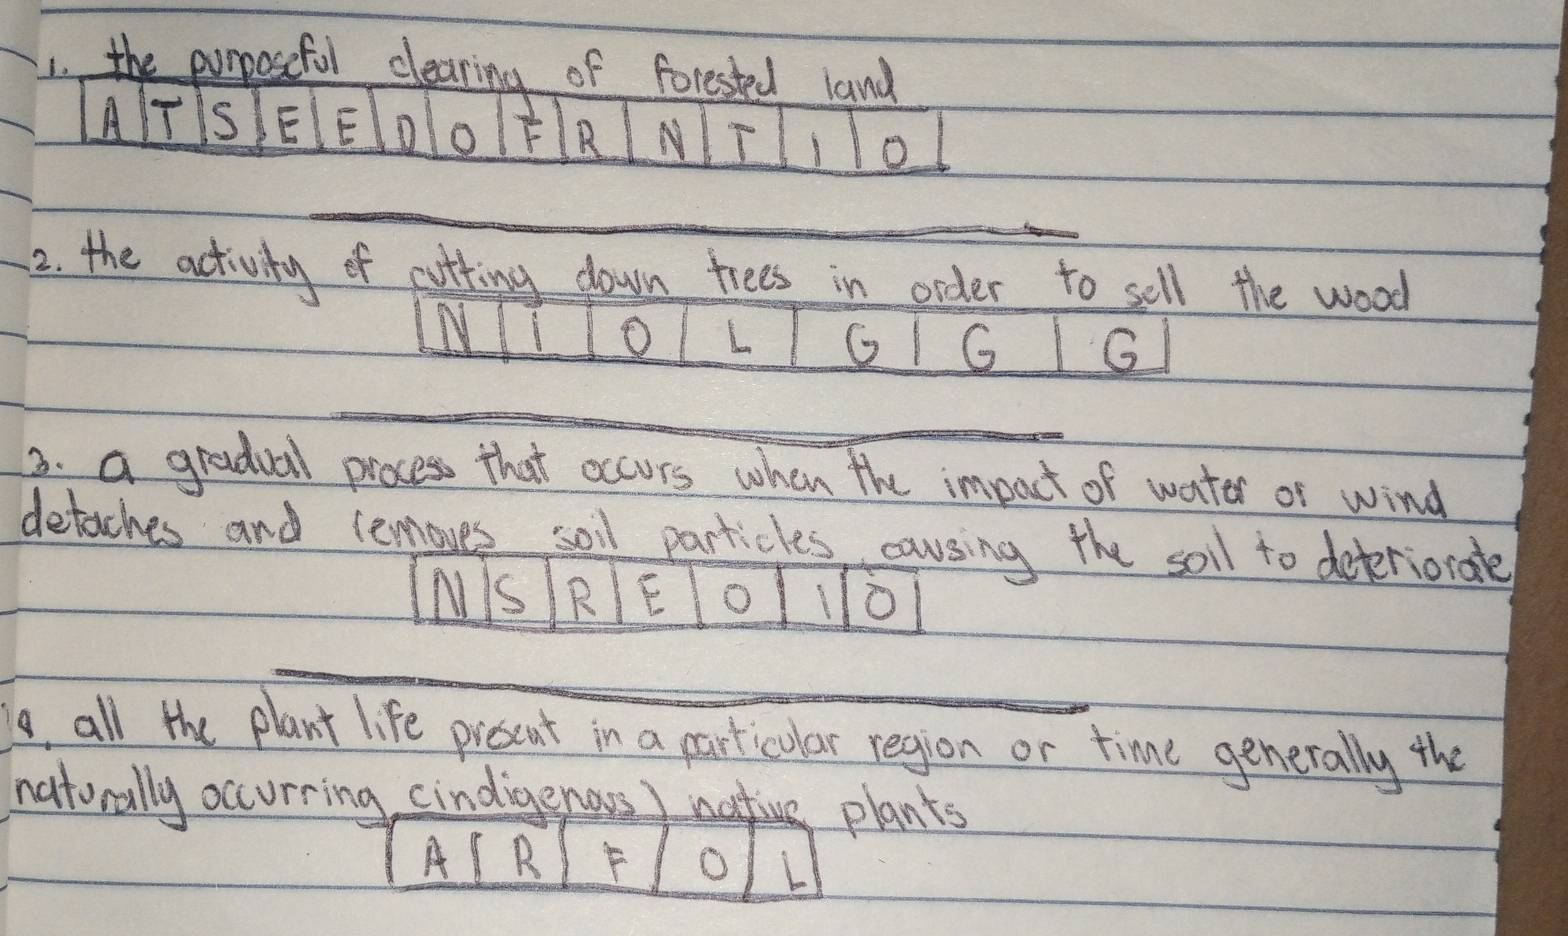 1. the purposeful clearing of forested land
A T S E E D O F R N T I O
2. the activity of cutting down trees in order to sell the wood
N I O L G G G
3. a gradual process that occurs when the impact of water or wind
detaches and removes soil particles, causing the soil to deteriorate
N S R E O I O
4. all the plant life present in a particular region or time generally the
naturally occurring cindigenous) native plants
A R F O L